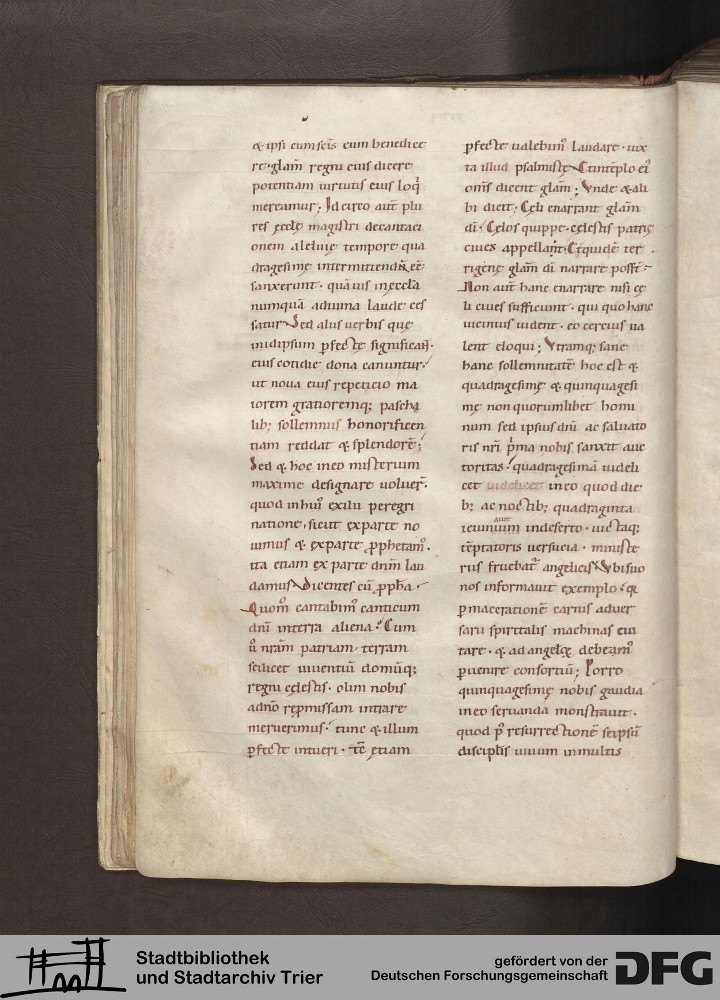 & ipsi cum sc̄is eum benedice
re · glām regni eius dicere
potentiam uirtutis eius loq̇
mereamur; Idcirco aut̄ plu
res eccłę magistri decantaci
onem aleluię tempore qua
dragesimę intermittendā eē
sanxerunt · quāuis in eccła
numquā a diuina laude ces
satur Sed aliis uerbis que
in id ipsum pfecte significaņ̄ ·
eius cotidie dona canuntur ·
ut noua eius repeticio ma
iorem gratioremq; pascha
lib; sollemnus honorificen
tiam reddat & splendorē;
Sed & hoc in eo misterium
maxime designare uoluer̄ ·
quod in hui᾿ exilii peregri
natione, sicut ex parte no
uimus & ex parte ꝓphetam᾿ ·
ita etiam ex parte dnm̄ lau
damus Dicentes cū ꝓpha ·
Quom̄ cantabim᾿ canticum
dnī in terra aliena? Cum
ů nrām patriam · terram
scilicet uiuentiū domūq;
regni cęlestis · olim nobis
a dnō repmissam intrare
meruerimus · tunc & illum
pfecte intueri · tc̄ etiam
pfecte ualebim᾿ laudare · iux
ta illud psalmistę Et in tēplo ei᾿
om̄s dicent glām; Vnde & ali
bi dicit · Cęli enarrant glām
dī · Cęlos quippe · cęlestis patrię
ciues appellant · Et quidē ter
rigenę glām dī narrare posst̄ ·
Non aut̄ hanc enarrare nisi cę
li ciues sufficiunt · qui quo hanc
uicinius uident · eo cercius ua
lent eloqui; Vtramq; sane
hanc sollemnitatē hoc est &
quadragesimę & quinquagesi
mę non quorumlibet homi
num sed ipsius dnī ac saluato
ris nrī pma nobis sanxit auc
toritas · quadragesimā uideli
cet uidelicet in eo quod die
b; ac noctib; quadraginta
ieiunium in deserto · uictaq;
auit
tēptatoris uersucia · ministe
riis fruebat᾿ angelicis Vbi suo
nos informauit exemplo · q̇
p macerationē carnis aduer
sarii spiritalis machinas eui
tare · & ad angeloꝝ debeam᾿
puenire consortiū; Porro
quinquagesimę nobis gaudia
in eo seruanda monstrauit ·
quod p᾿ resurrectionē se ipsū
discipłis uiuum in multis
Stadtbibliothek
und Stadtarchiv Trier
gefördert von der
Deutschen Forschungsgemeinschaft
DFG